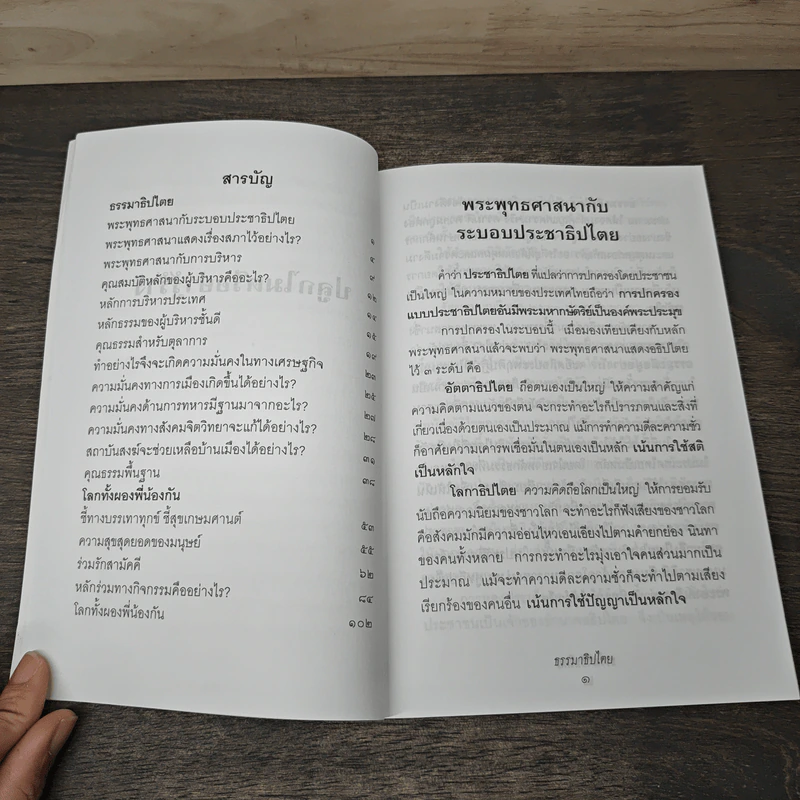 สารบัญ
ธรรมาธิปไตย
พระพุทธศาสนากับระบอบประชาธิปไตย ๑
พระพุทธศาสนาแสดงเรื่องสภาไว้อย่างไร? ๔
พระพุทธศาสนากับการบริหาร ๙
คุณสมบัติหลักของผู้บริหารคืออะไร? ๑๒
หลักการบริหารประเทศ ๑๔
หลักธรรมของผู้บริหารชั้นดี ๑๕
คุณธรรมสำหรับตุลาการ ๑๙
ทำอย่างไรจึงจะเกิดความมั่นคงในทางเศรษฐกิจ ๒๓
ความมั่นคงทางการเมืองเกิดขึ้นได้อย่างไร? ๒๕
ความมั่นคงด้านการทหารมีฐานมาจากอะไร? ๒๗
ความมั่นคงทางสังคมจิตวิทยาจะแก้ได้อย่างไร? ๒๘
สถาบันสงฆ์จะช่วยเหลือบ้านเมืองได้อย่างไร? ๓๑
คุณธรรมพื้นฐาน ๓๘
โลกทั้งผองพี่น้องกัน
ชี้ทางบรรเทาทุกข์ ชี้สุขเกษมศานต์ ๕๓
ความสุขสุดยอดของมนุษย์ ๕๕
ร่วมรักสามัคคี ๖๒
หลักร่วมทางกิจกรรมคืออย่างไร? ๘๔
โลกทั้งผองพี่น้องกัน ๑๐๒
พระพุทธศาสนากับ
ระบอบประชาธิปไตย
คำว่า ประชาธิปไตย ที่แปลว่าการปกครองโดยประชาชน
เป็นใหญ่ ในความหมายของประเทศไทยถือว่า การปกครอง
แบบประชาธิปไตยอันมีพระมหากษัตริย์เป็นองค์พระประมุข
การปกครองในระบอบนี้ เมื่อมองเทียบเคียงกับหลัก
พระพุทธศาสนาแล้วจะพบว่า พระพุทธศาสนาแสดงอธิปไตย
ไว้ ๓ ระดับ คือ
อัตตาธิปไตย ถือตนเองเป็นใหญ่ ให้ความสำคัญแก่
ความคิดตามแนวของตน จะกระทำอะไรก็ปรารภตนและสิ่งที่
เกี่ยวเนื่องด้วยตนเองเป็นประมาณ แม้การทำความดีละความชั่ว
ก็อาศัยความเคารพเชื่อมั่นในตนเองเป็นหลัก เน้นการใช้สติ
เป็นหลักใจ
โลกาธิปไตย ความคิดถือโลกเป็นใหญ่ ให้การยอมรับ
นับถือความนิยมของชาวโลก จะทำอะไรก็ฟังเสียงของชาวโลก
คือสังคมมักมีความอ่อนไหวเอนเอียงไปตามคำยกย่อง นินทา
ของคนทั้งหลาย การกระทำอะไรมุ่งเอาใจคนส่วนมากเป็น
ประมาณ แม้จะทำความดีละความชั่วก็จะทำไปตามเสียง
เรียกร้องของคนอื่น เน้นการใช้ปัญญาเป็นหลักใจ
ธรรมาธิปไตย
๑